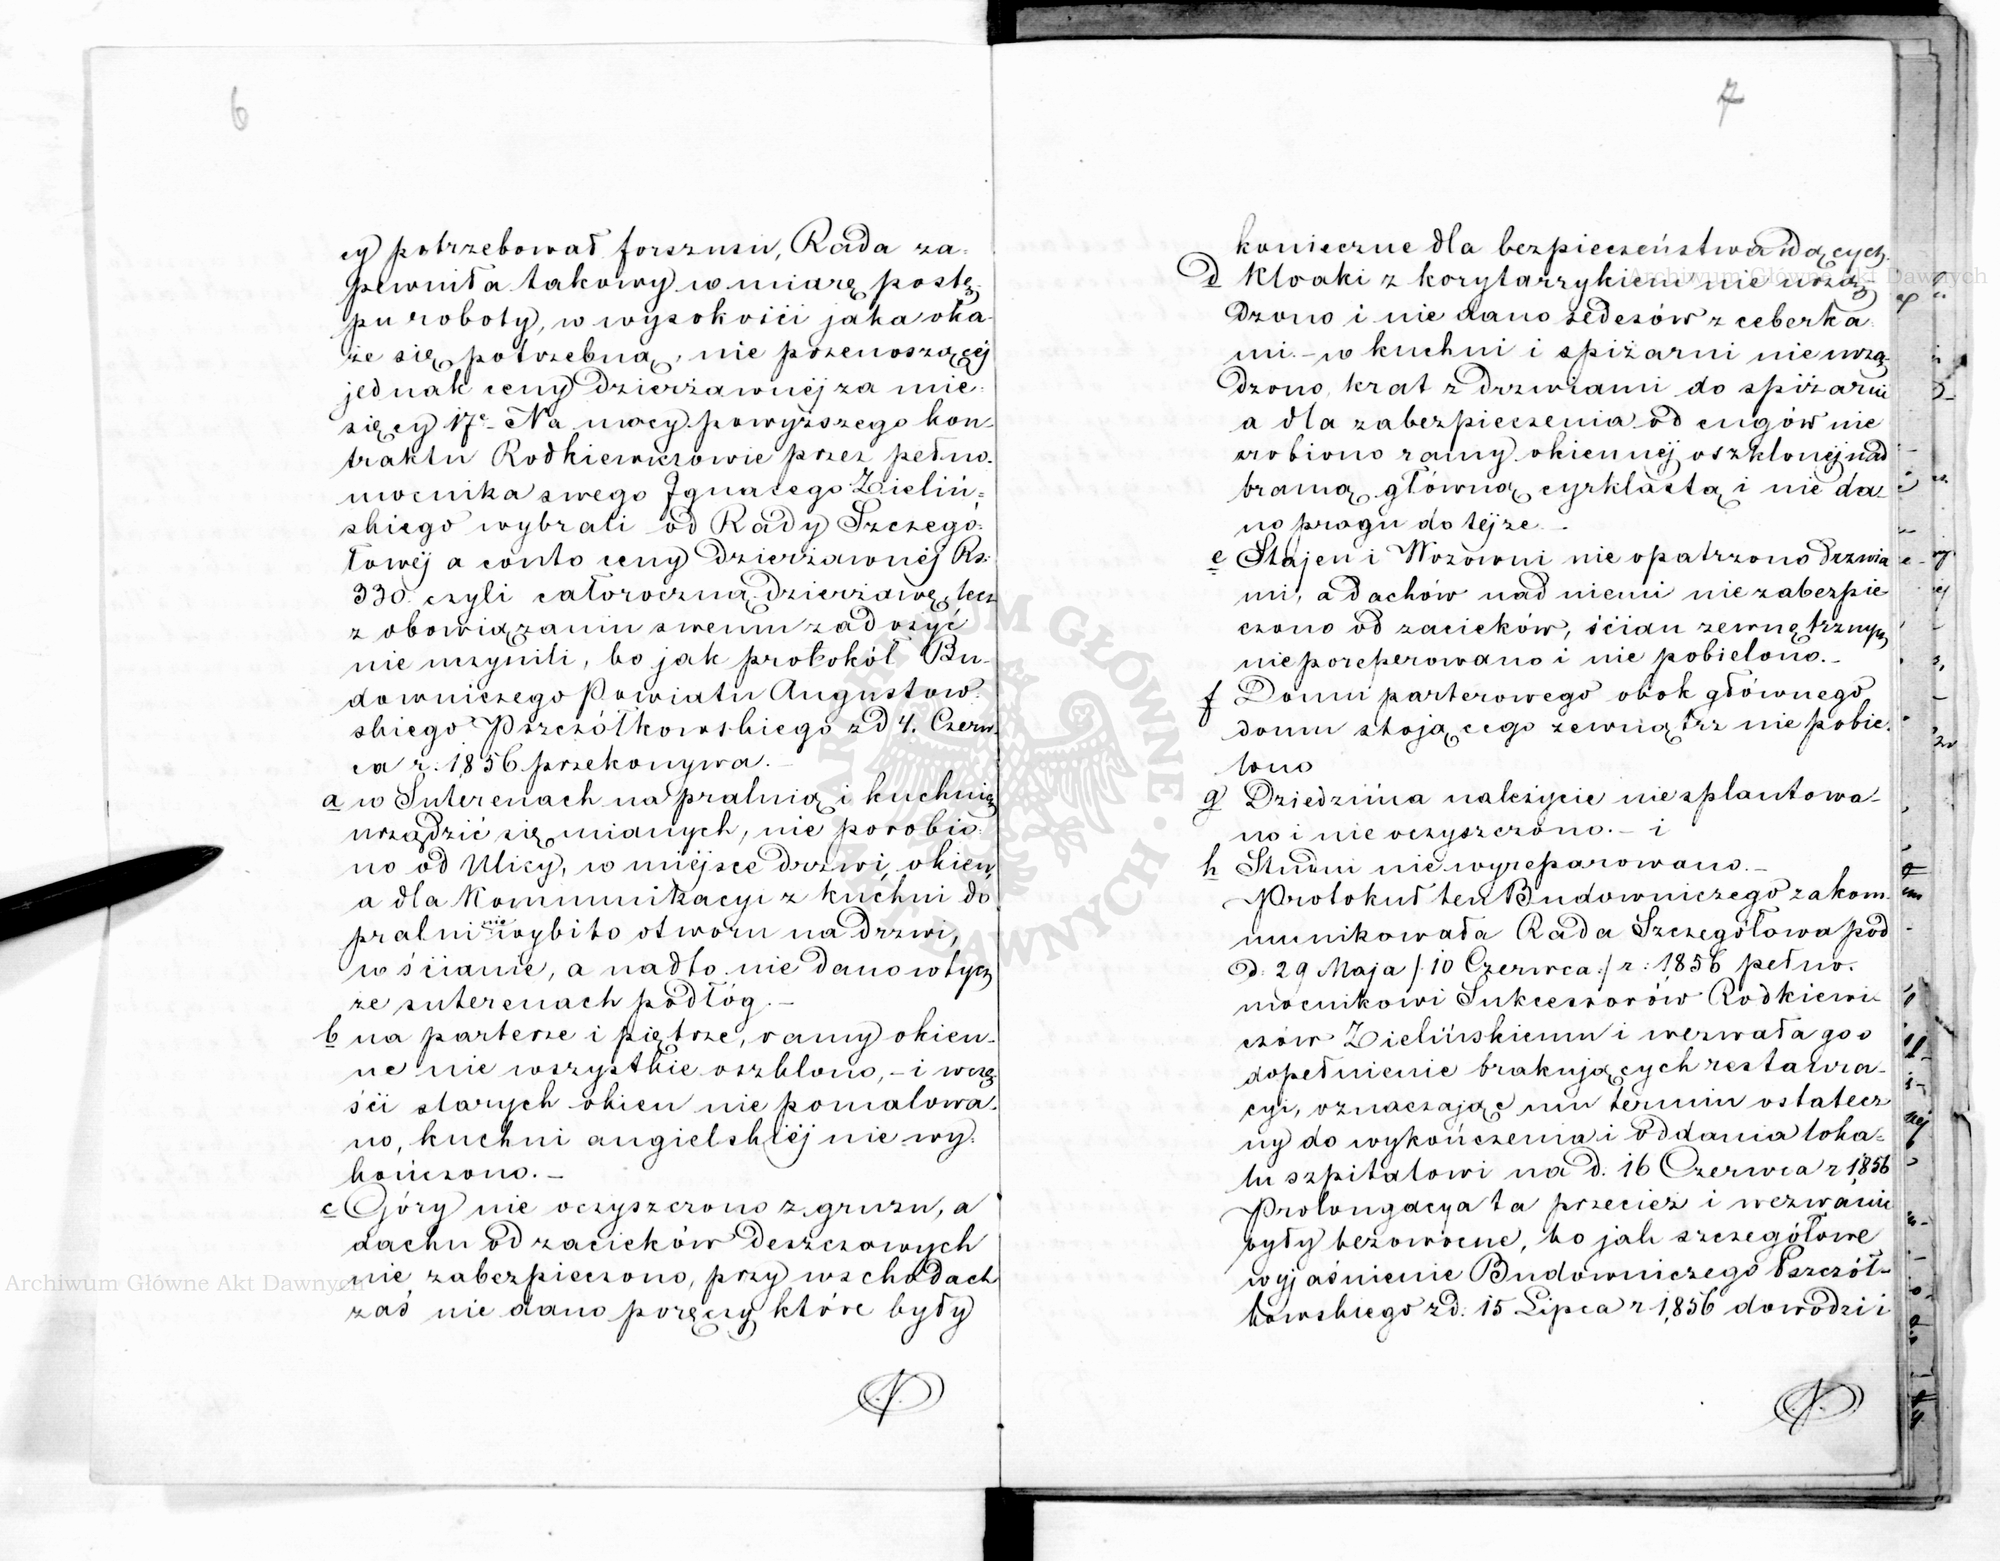 6
cy potrzebował forszusu, Rada za-
pewniła takowy w miarę postę-
pu roboty, w wysokości jaka oka-
że się potrzebną, nie przenoszącéj
jednak ceny dzierżawnéj za mie-
sięcy 17e- Na mocy powyższego kon-
traktu Rodkiewiczowie przez pełno-
mocnika swego Ignacego Zieliń-
skiego wybrali od Rady Szczegó-
łowéj a conto ceny dzierżawnéj Rs:
330. czyli całoroczną dzierżawę, lecz
z obowiązaniu swemu zadosyć
nie uczynili, bo jak protokół Bu-
downiczego Powiatu Augustow-
skiego Pszczółkowskiego z d 4. Czerw-
ca r. 1856 przekonywa.-
a w Suterenach na pralnią i kuchnią
urządzić się mianych, nie porobio-
no od Ulicy, w miejsce drzwi, okien,
a dla Kommunikacyi z kuchni do
pralni nie wybito otworu na drzwi,
w ścianie, a nadto nie dano w tych
że suterenach podłóg.-
b na parterze i piętrze, ramy okien-
ne nie wszystkie oszklono,- i w czę-
ści starych okien nie pomalowa-
no, kuchni angielskiéj nie wy-
kończono.-
c Góry nie oczyszczono z gruzu, a
dachu od zacieków deszczowych
nie zabezpieczono, przy wschodach
zaś nie dano poręczy które były
7
konieczne dla bezpieczeństwa idących.
d Kloaki z korytarzykiem nie urzą-
dzono i nie dano sedesów z ceberka-
mi.- w kuchni i spiżarni nie urzą-
dzono krat z drzwiami do spiżarni
a dla zabezpieczenia od cugów nie
zrobiono ramy okiennéj oszklonéj nad
bramą główną cyrklastą i nie da-
no progu do téjże.-
e Stajen i Wozowni nie opatrzono drzwia
mi, a dachów nad niemi nie zabezpie
czono od zacieków, ścian zewnętrznych
nie poreperowano i nie pobielono.-
f Domu parterowego obok głównego
domu stojącego zewnątrz nie pobie-
lono
g Dziedzińca należycie nie splantowa-
no i nie oczyszczono.- i
h Studni nie wyreparowano.-
Protokuł ten Budowniczego zakom-
munikowała Rada Szczegółowa pod
d. 29 Maja /:10 Czerwca:/ r: 1856 pełno-
mocnikowi Sukcessorów Rodkiewi
czów Zielińskiemu i wezwała go o
dopełnienie brakujących restawra-
cyi, oznaczając mu termin ostatecz
ny do wykończenia i oddania loka-
lu szpitalowi na d. 16 Czerwca r 1856
Prolongacya ta przecież i wezwanie
były bezowocne, bo jak szczegółowe
wyjaśnienie Budowniczego Pszczół-
kowskiego z d: 15 Lipca r 1856 dowodzi i
Archiwum Główne Akt Dawnych
Archiwum Główne Akt Dawnych
ARCHIWUM GŁÓWNE AKT DAWNYCH